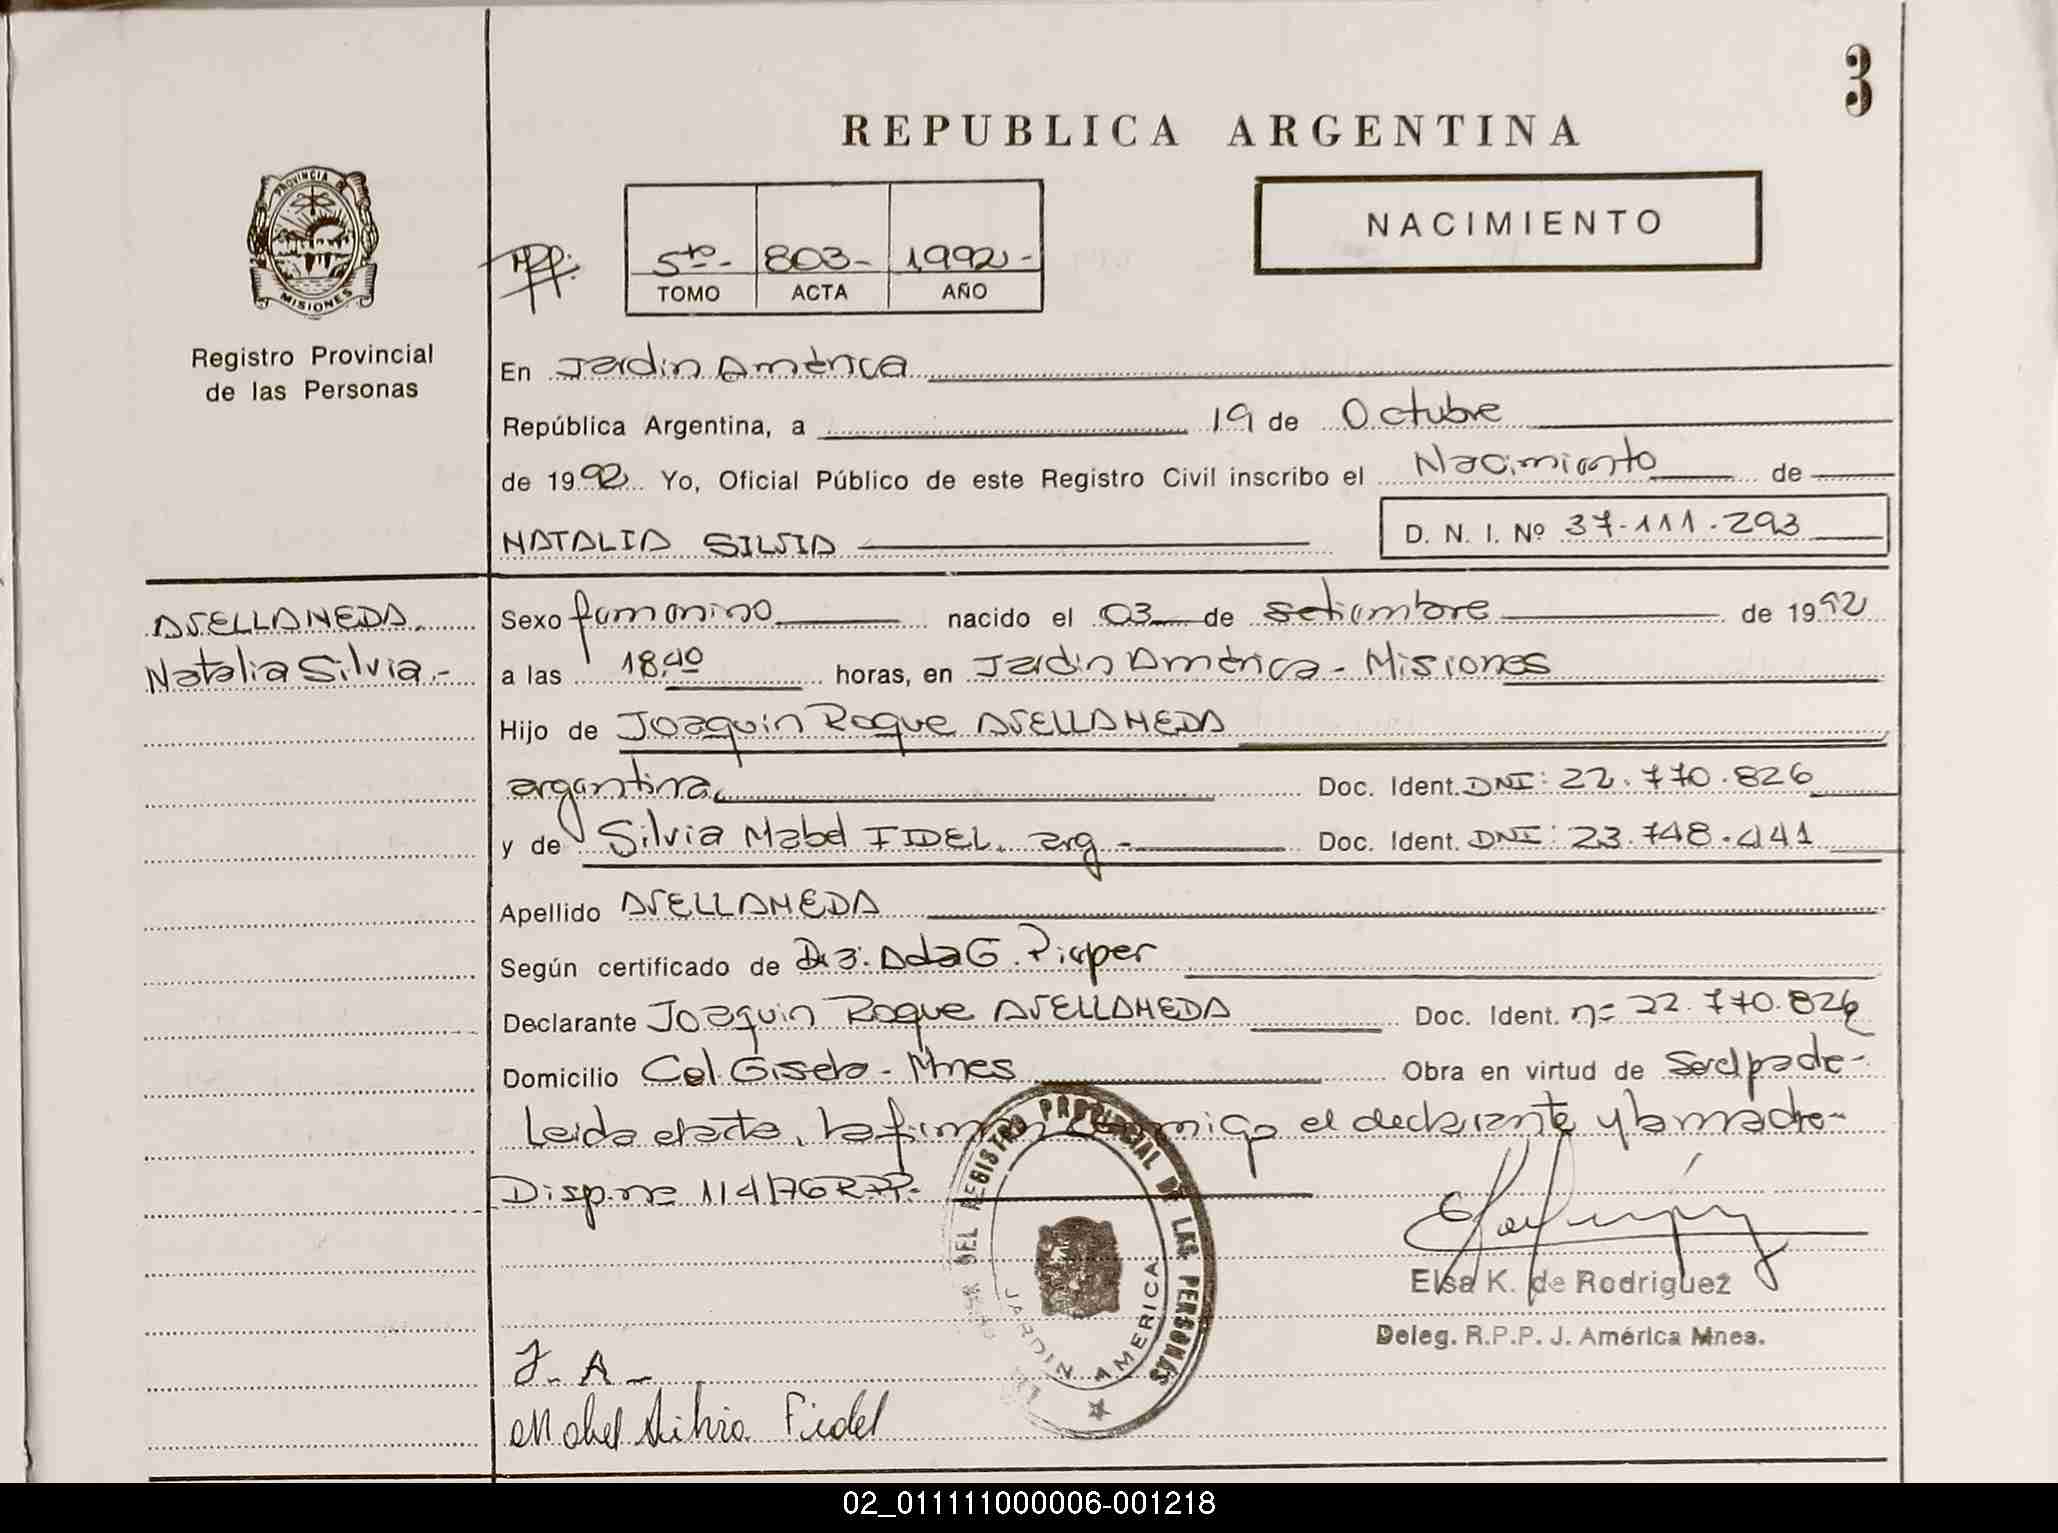 3
REPUBLICA ARGENTINA
NACIMIENTO
PROVINCIA DE
MISIONES
Registro Provincial
de las Personas
5to- 803- 1992-
TOMO ACTA AÑO
En Jardin América
República Argentina, a 19 de Octubre
de 1992 Yo, Oficial Público de este Registro Civil inscribo el Nacimiento de
NATALIA SILVIA D. N. I. Nº 37.111.293
AVELLANEDA.
Natalia Silvia.-
Sexo femenino nacido el 03 de setiembre de 1992
a las 18,40 horas, en Jardin América - Misiones
Hijo de Joaquin Roque AVELLANEDA
argentina, Doc. Ident. DNI: 22.770.826
y de Silvia Mabel FIDEL. arg - Doc. Ident. DNI: 23.748.441
Apellido AVELLANEDA
Según certificado de Dra. Ada G. Pieper
Declarante Joaquin Roque AVELLANEDA Doc. Ident. n= 22.770.826
Domicilio Col. Gisela - Mnes Obra en virtud de Ser el padre-
Leida el acta, la firman conmigo el declarante y la madre-
Disp. nº 114/76 R.P.P.
DEL REGISTRO PROVINCIAL DE LAS PERSONAS
JARDIN AMERICA
Elsa K. de Rodriguez
Deleg. R.P.P. J. América Mnes.
J. A-
Mabel Silvia Fidel
02_011111000006-001218